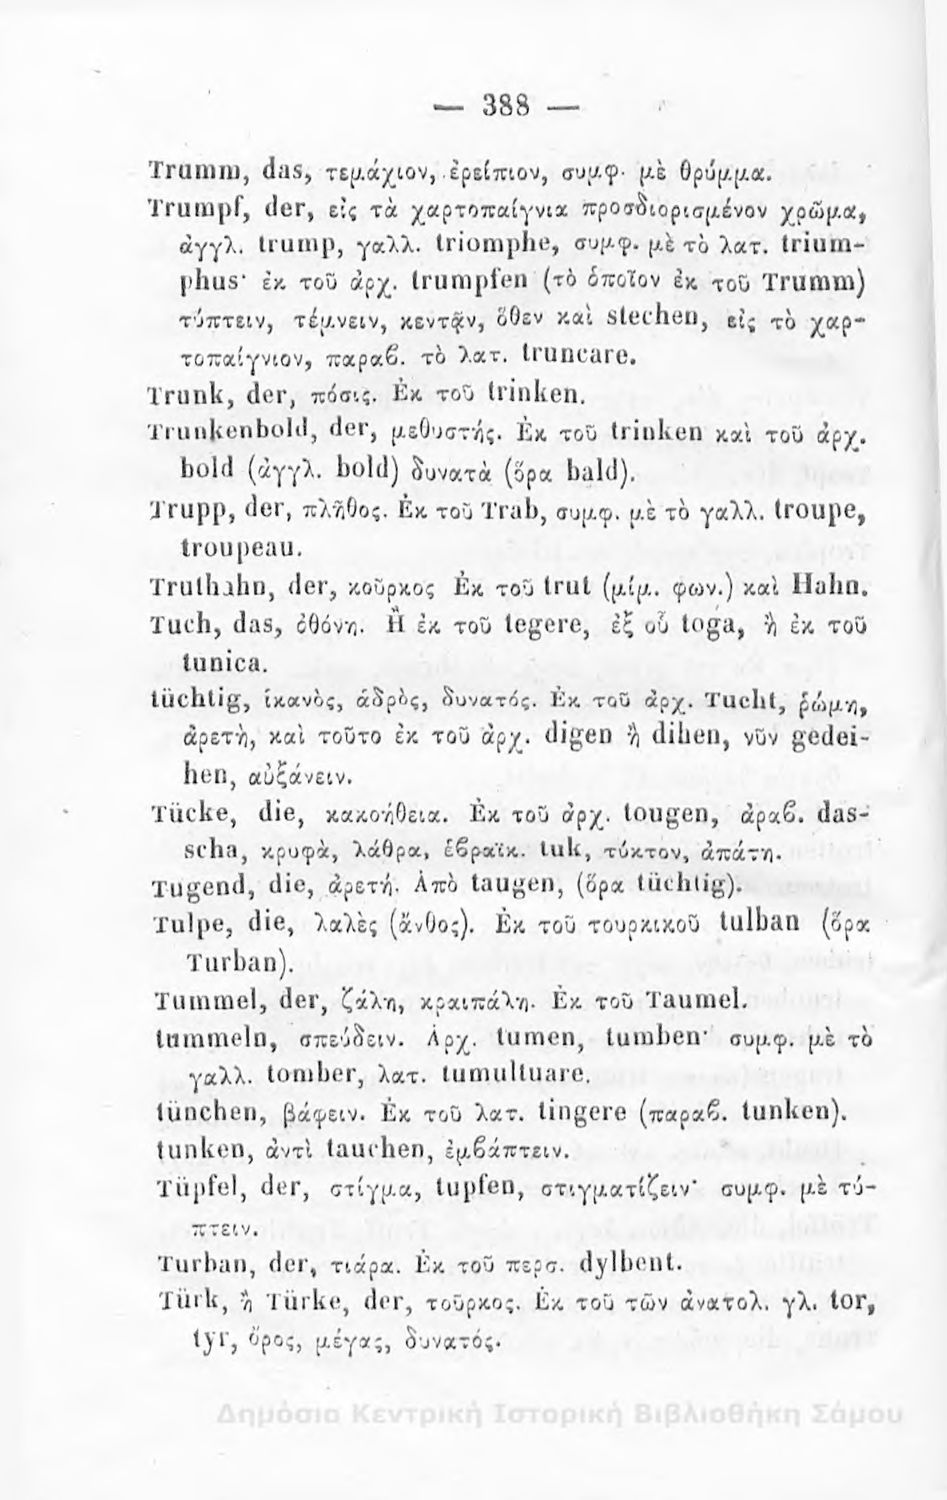 — 388 —
Trumm, das, τεμάχιον, ἐρείπιον, συμφ. μὲ θρύμμα.
Trumpf, der, εἰς τὰ χαρτοπαίγνια προσδιορισμένον χρῶμα,
ἀγγλ. trump, γαλλ. triomphe, συμφ. μὲ τὸ λατ. trium-
phus· ἐκ τοῦ ἀρχ. trumpfen (τὸ ὁποῖον ἐκ τοῦ Trumm)
τύπτειν, τέμνειν, κεντᾷν, ὅθεν καὶ stechen, εἰς τὸ χαρ-
τοπαίγνιον, παραβ. τὸ λατ. truncare.
Trunk, der, πόσις. Ἐκ τοῦ trinken.
Trunkenbold, der, μεθυστής. Ἐκ τοῦ trinken καὶ τοῦ ἀρχ.
bold (ἀγγλ. bold) δυνατὰ (ὅρα bald).
Trupp, der, πλῆθος. Ἐκ τοῦ Trab, συμφ. μὲ τὸ γαλλ. troupe,
troupeau.
Truthahn, der, κοῦρκος Ἐκ τοῦ trut (μίμ. φων.) καὶ Hahn.
Tuch, das, ὀθόνη. Ἢ ἐκ τοῦ tegere, ἐξ οὗ toga, ἢ ἐκ τοῦ
tunica.
tüchtig, ἱκανὸς, ἁδρὸς, δυνατός. Ἐκ τοῦ ἀρχ. Tucht, ῥώμη,
ἀρετὴ, καὶ τοῦτο ἐκ τοῦ ἀρχ. digen ἢ dihen, νῦν gedei-
hen, αὐξάνειν.
Tücke, die, κακοήθεια. Ἐκ τοῦ ἀρχ. tougen, ἀραβ. das-
scha, κρυφὰ, λάθρα, ἑβραϊκ. tuk, τύκτον, ἀπάτη.
Tugend, die, ἀρετή. Ἀπὸ taugen, (ὅρα tüchtig).
Tulpe, die, λαλὲς (ἄνθος). Ἐκ τοῦ τουρκικοῦ tulban (ὅρα
Turban).
Tummel, der, ζάλη, κραιπάλη. Ἐκ τοῦ Taumel.
tummeln, σπεύδειν. Ἀρχ. tumen, tumben· συμφ. μὲ τὸ
γαλλ. tomber, λατ. tumultuare.
tünchen, βάφειν. Ἐκ τοῦ λατ. tingere (παραβ. tunken).
tunken, ἀντὶ tauchen, ἐμβάπτειν.
Tüpfel, der, στίγμα, tupfen, στιγματίζειν· συμφ. μὲ τύ-
πτειν.
Turban, der, τιάρα. Ἐκ τοῦ περσ. dylbent.
Türk, ἢ Türke, der, τοῦρκος. Ἐκ τοῦ τῶν ἀνατολ. γλ. tor,
tyr, ὄρος, μέγας, δυνατός.
Δημόσια Κεντρική Ιστορική Βιβλιοθήκη Σάμου